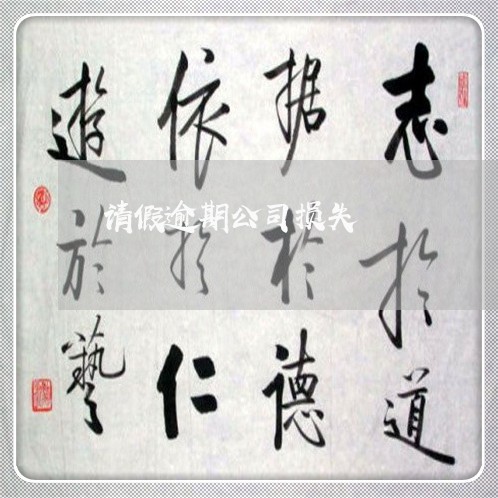 志於道
据於德
依於仁
遊於藝
请假逾期公司损失